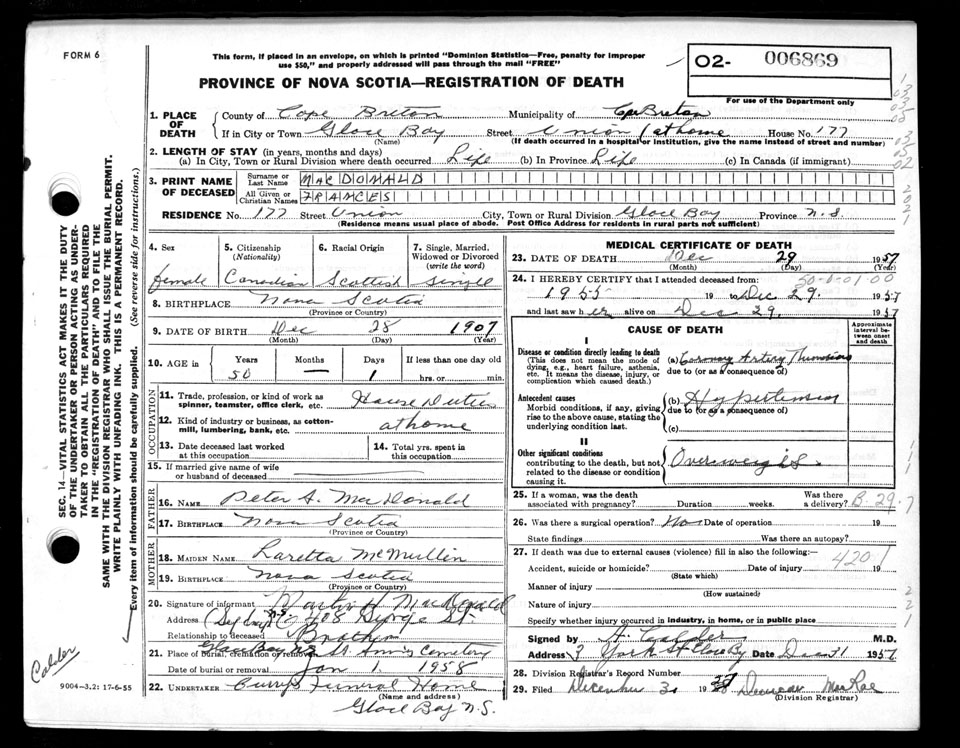 FORM 6
This form, if placed in an envelope, on which is printed "Dominion Statistics—Free, penalty for improper
use $50," and properly addressed will pass through the mail "FREE"
PROVINCE OF NOVA SCOTIA—REGISTRATION OF DEATH
O2- 006869
For use of the Department only
SEC. 14—VITAL STATISTICS ACT MAKES IT THE DUTY
OF THE UNDERTAKER OR PERSON ACTING AS UNDER-
TAKER TO OBTAIN ALL THE PARTICULARS REQUIRED
IN THE "REGISTRATION OF DEATH" AND TO FILE THE
SAME WITH THE DIVISION REGISTRAR WHO SHALL ISSUE THE BURIAL PERMIT.
WRITE PLAINLY WITH UNFADING INK. THIS IS A PERMANENT RECORD.
Every item of information should be carefully supplied. (See reverse side for instructions.)
1. PLACE OF DEATH
County of Cape Breton Municipality of C. Breton
If in City or Town Glace Bay Street Union / at home House No. 177
(Name) (If death occurred in a hospital or institution, give the name instead of street and number)
2. LENGTH OF STAY (in years, months and days)
(a) In City, Town or Rural Division where death occurred Life (b) In Province Life (c) In Canada (if immigrant)
3. PRINT NAME OF DECEASED
Surname or Last Name MACDONALD
All Given or Christian Names FRANCES
RESIDENCE No. 177 Street Union City, Town or Rural Division Glace Bay Province N.S.
(Residence means usual place of abode. Post Office Address for residents in rural parts not sufficient)
4. Sex 5. Citizenship (Nationality) 6. Racial Origin 7. Single, Married, Widowed or Divorced (write the word)
female Canadian Scottish Single
8. BIRTHPLACE Nova Scotia
(Province or Country)
9. DATE OF BIRTH Dec 28 1907
(Month) (Day) (Year)
10. AGE in Years Months Days If less than one day old
50 — 1 hrs. or min.
OCCUPATION
11. Trade, profession, or kind of work as
spinner, teamster, office clerk, etc. House Duties
12. Kind of industry or business, as cotton-
mill, lumbering, bank, etc. at home
13. Date deceased last worked
at this occupation
14. Total yrs. spent in
this occupation
15. If married give name of wife
or husband of deceased
FATHER
16. NAME Peter A. MacDonald
17. BIRTHPLACE Nova Scotia
(Province or Country)
MOTHER
18. MAIDEN NAME Laretta McMullin
19. BIRTHPLACE Nova Scotia
(Province or Country)
20. Signature of informant Martin H MacDonald
Address (Sydney N.S.) 408 George St.
Relationship to deceased Brother
21. Place of burial, cremation or removal Glace Bay NS St. Ann's Cemetery
Date of burial or removal Jan 1 1958
22. UNDERTAKER Curry's Funeral Home
(Name and address)
Glace Bay N.S.
Calder
9004-3.2: 17-6-55
MEDICAL CERTIFICATE OF DEATH
23. DATE OF DEATH Dec 29 1957
(Month) (Day) (Year)
24. I HEREBY CERTIFY that I attended deceased from:
1955 19 to Dec 29. 1957
and last saw her alive on Dec 29, 1957
CAUSE OF DEATH
Approximate interval between onset and death
I
Disease or condition directly leading to death
(This does not mean the mode of
dying, e.g., heart failure, asthenia,
etc. It means the disease, injury, or
complication which caused death.)
(a) Coronary Artery Thrombosis
due to (or as a consequence of)
Antecedent causes
Morbid conditions, if any, giving
rise to the above cause, stating the
underlying condition last.
(b) Hypertension
due to (or as a consequence of)
(c)
II
Other significant conditions
contributing to the death, but not
related to the disease or condition
causing it.
Overweight.
25. If a woman, was the death
associated with pregnancy? Duration weeks. Was there
a delivery? B-29.7
26. Was there a surgical operation? No Date of operation 19
State findings Was there an autopsy?
27. If death was due to external causes (violence) fill in also the following:—
Accident, suicide or homicide? Date of injury 19
(State which)
420 1
Manner of injury
(How sustained)
Nature of injury
Specify whether injury occurred in industry, in home, or in public place
Signed by A. Calder M.D.
Address York St Glace Bay Date Dec 31 1957
28. Division Registrar's Record Number
29. Filed December 31 19 Duncan MacRae
(Division Registrar)